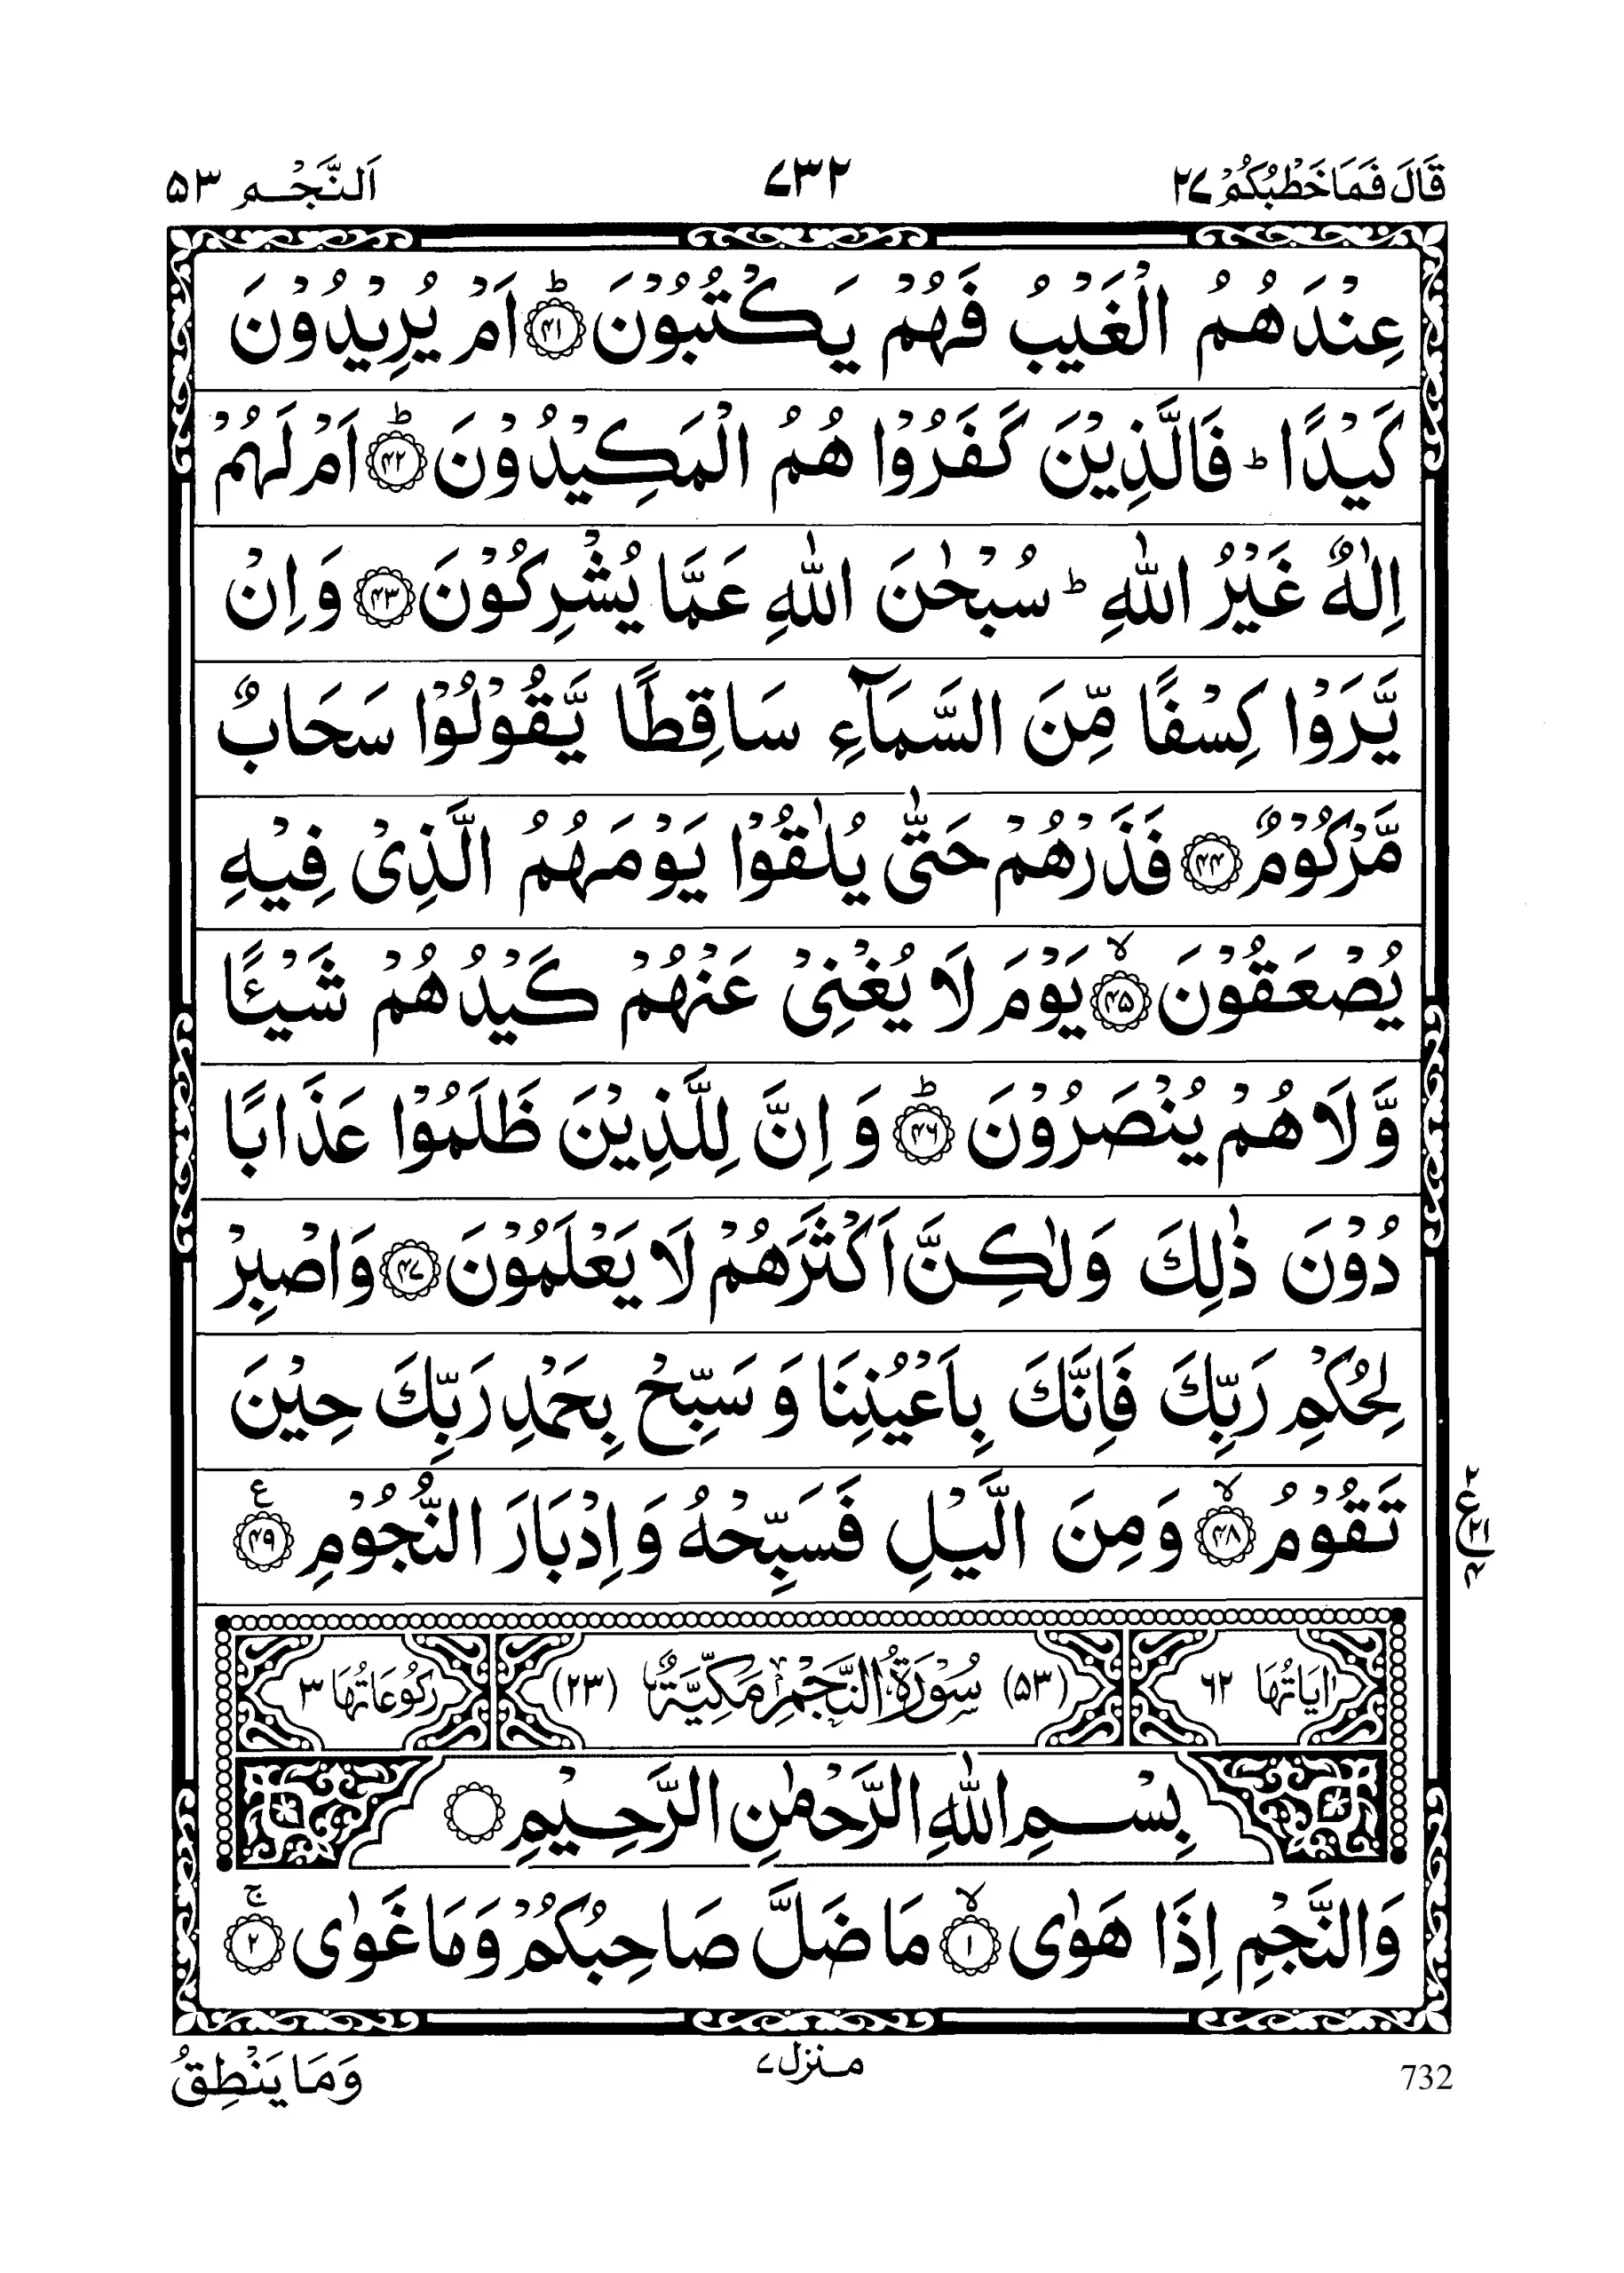 قَالَ فَمَا خَطْبُكُمْ ۲۷ ۷۳۲ اَلنَّجْم ۵۳
عِنْدَهُمُ الْغَيْبُ فَهُمْ يَكْتُبُوْنَ ؕ﴿۴۱﴾ اَمْ يُرِيْدُوْنَ
كَيْدًا ؕ فَالَّذِيْنَ كَفَرُوْا هُمُ الْمَكِيْدُوْنَ ؕ﴿۴۲﴾ اَمْ لَهُمْ
اِلٰهٌ غَيْرُ اللّٰهِ ؕ سُبْحٰنَ اللّٰهِ عَمَّا يُشْرِكُوْنَ ﴿۴۳﴾ وَ اِنْ
يَّرَوْا كِسْفًا مِّنَ السَّمَآءِ سَاقِطًا يَّقُوْلُوْا سَحَابٌ
مَّرْكُوْمٌ ﴿۴۴﴾ فَذَرْهُمْ حَتّٰى يُلٰقُوْا يَوْمَهُمُ الَّذِىْ فِيْهِ
يُصْعَقُوْنَ ۙ﴿۴۵﴾ يَوْمَ لَا يُغْنِىْ عَنْهُمْ كَيْدُهُمْ شَيْـًٔا
وَّلَا هُمْ يُنْصَرُوْنَ ؕ﴿۴۶﴾ وَ اِنَّ لِلَّذِيْنَ ظَلَمُوْا عَذَابًا
دُوْنَ ذٰلِكَ وَلٰكِنَّ اَكْثَرَهُمْ لَا يَعْلَمُوْنَ ﴿۴۷﴾ وَاصْبِرْ
لِحُكْمِ رَبِّكَ فَاِنَّكَ بِاَعْيُنِنَا وَ سَبِّحْ بِحَمْدِ رَبِّكَ حِيْنَ
تَقُوْمُ ۙ﴿۴۸﴾ وَمِنَ الَّيْلِ فَسَبِّحْهُ وَ اِدْبَارَ النُّجُوْمِ ﴿۴۹﴾ ع
۲ ع ۲۱ ۴
اٰيَاتُهَا ۶۲ (۵۳) سُوْرَةُ النَّجْمِ مَكِّيَّةٌ (۲۳) رُكُوْعَاتُهَا ۳
بِسْمِ اللّٰهِ الرَّحْمٰنِ الرَّحِيْمِ
وَالنَّجْمِ اِذَا هَوٰى ۙ﴿۱﴾ مَا ضَلَّ صَاحِبُكُمْ وَمَا غَوٰى ۚ﴿۲﴾
732 منزل ۷ وَمَا يَنْطِقُ